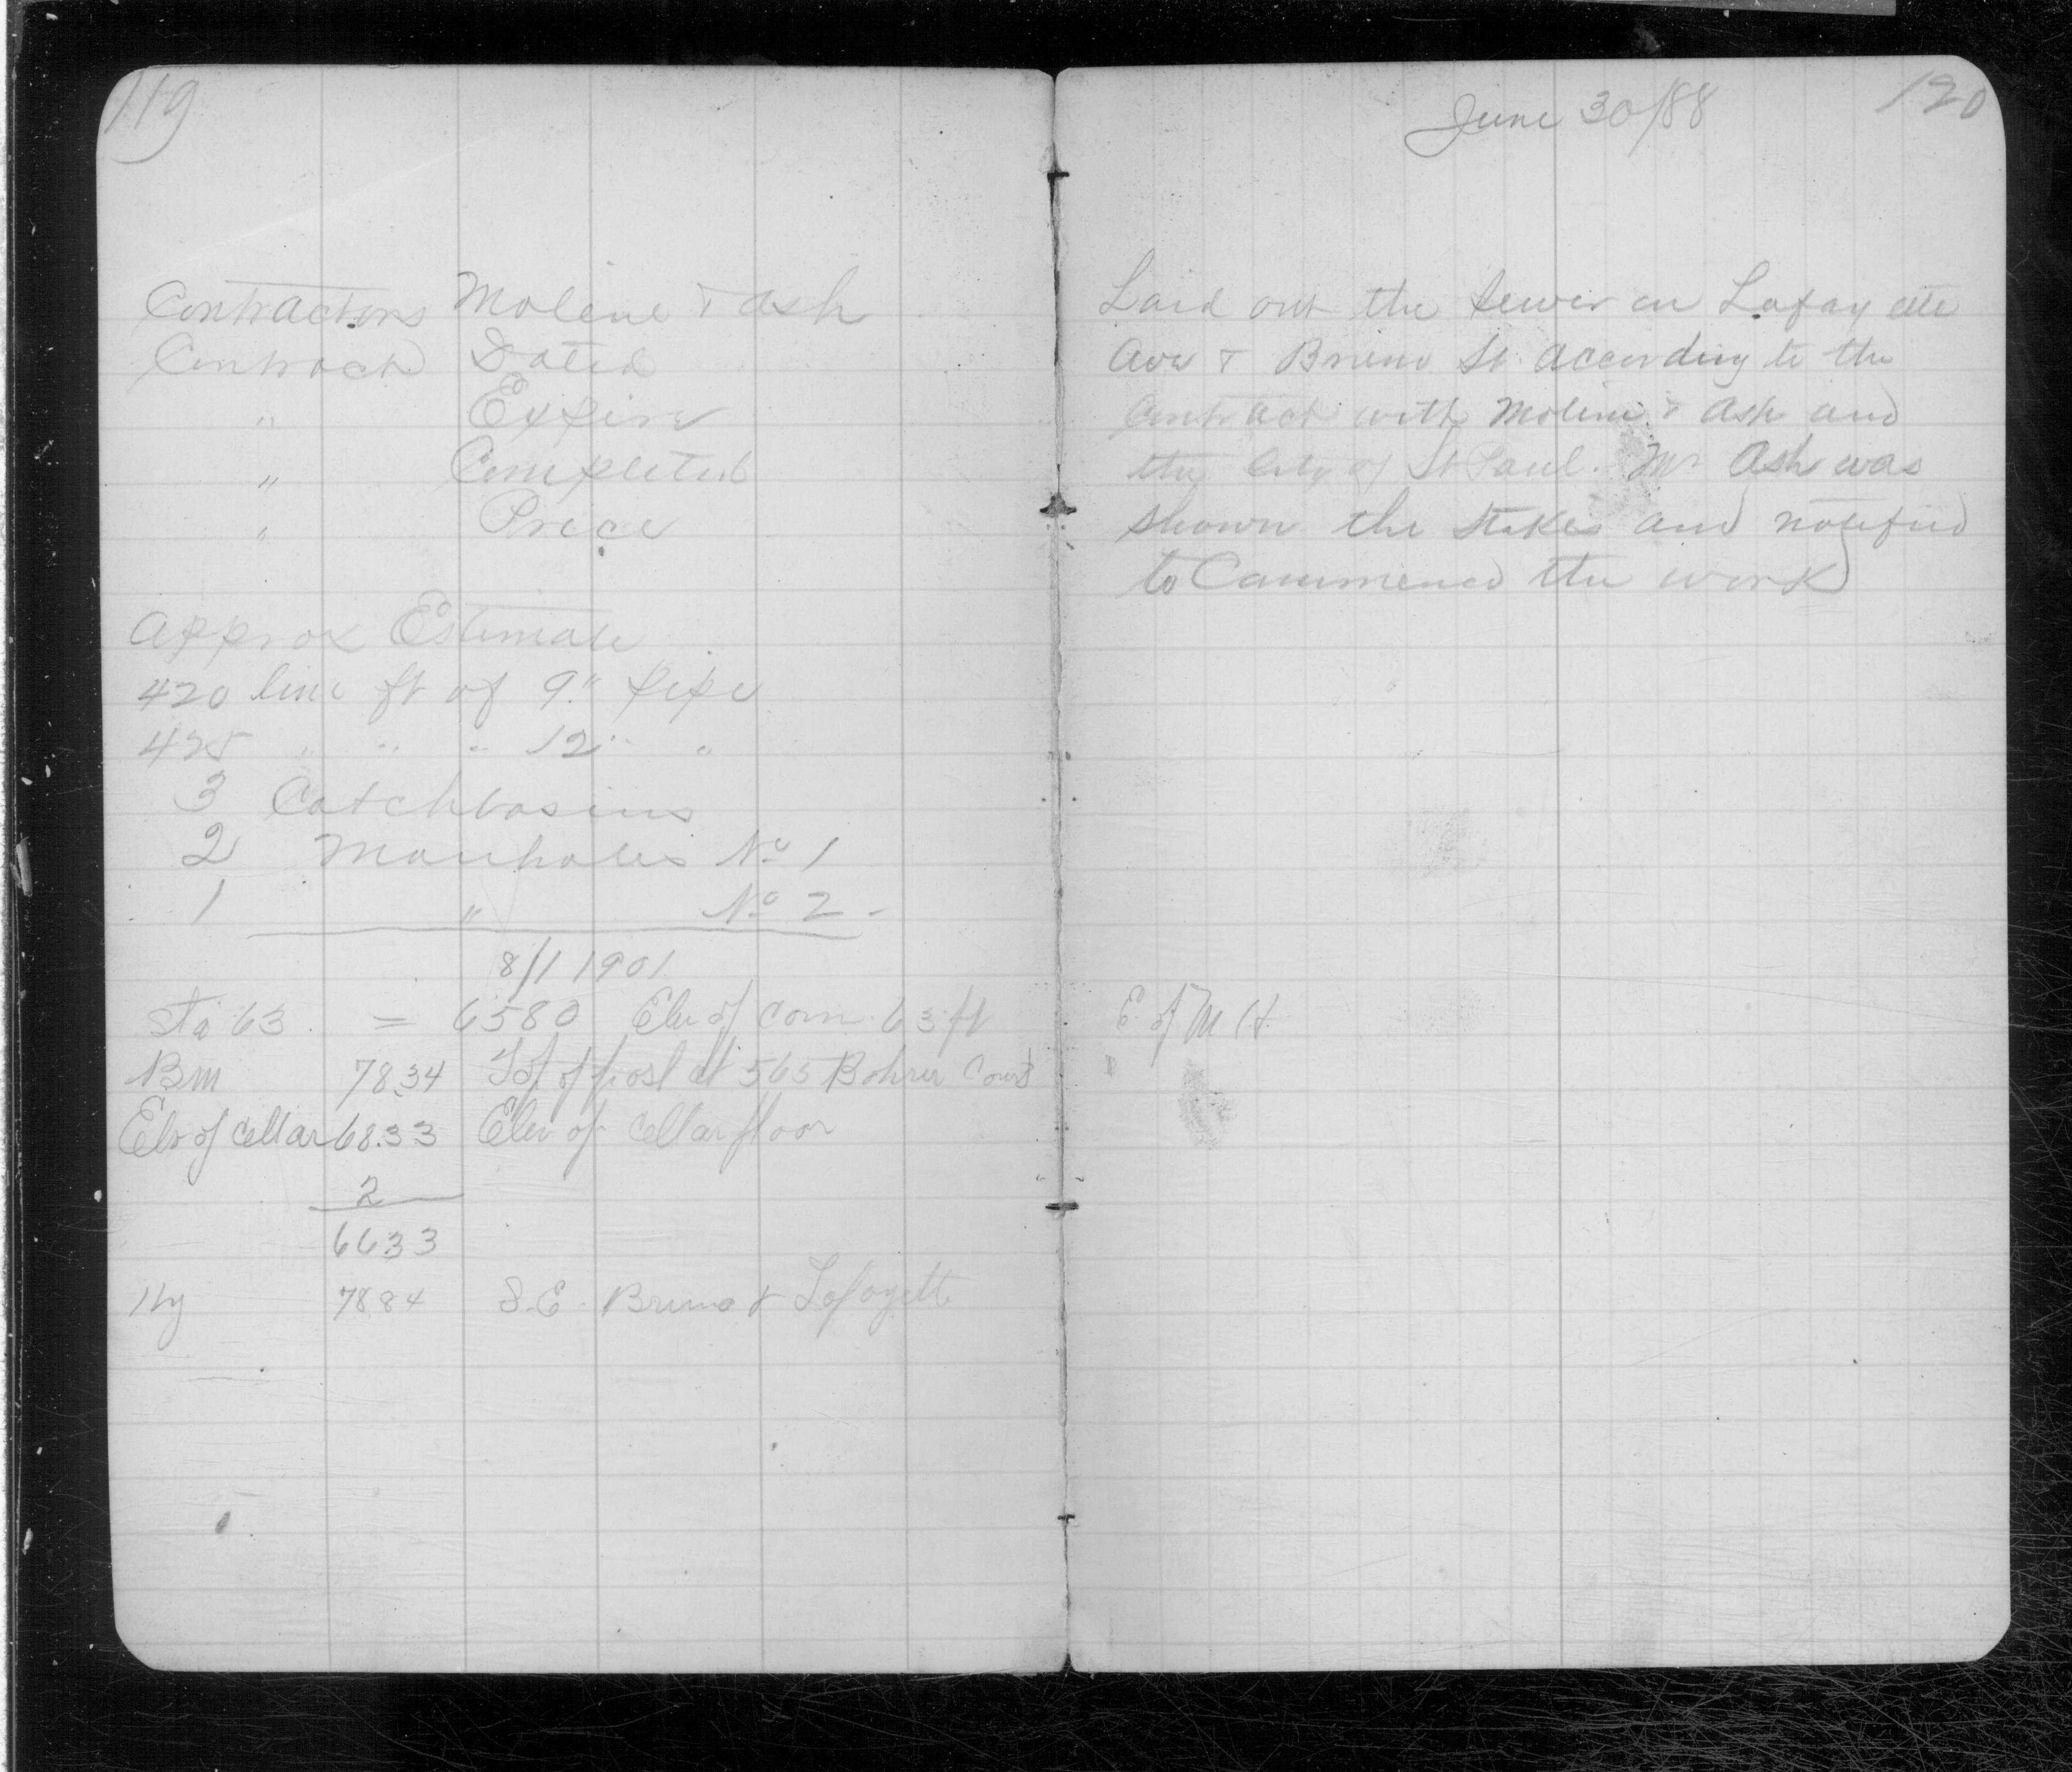 119
Contractors Moline & Ash
Contract Dated
" Expire
" Completed
" Price
Approx Estimate
420 line ft of 9" pipe
425 " " " 12" "
3 Catchbasins
2 Manholes No 1
1 " No 2 -
8/1 1901
Sta 63 = 6580 Elv of conn. 63 ft
BM 78.34 Top of post at 565 Bohrer Court
Elv of Cellar 68.33 Elev of cellar floor
2
66.33
Hy 7884 S.E. Bruno & Lafayette
120
June 30/88
Laid out the sewer on Lafayette
Ave & Bruno St. According to the
Contract with Moline & Ash and
the City of St Paul. Mr Ash was
shown the stakes and notified
to Commence the work
E of M H